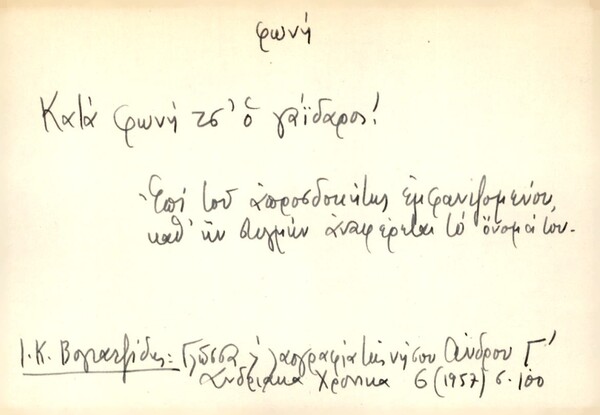 φωνή
Κατά φωνή τσ' ὁ γάϊδαρος!
Ἐπί τοῦ ἀπροσδοκήτως ἐμφανιζομένου,
καθ' ἥν στιγμήν ἀναφέρεται τό ὄνομά του.
Ι. Κ. Βογιατζίδης: Γλῶσσα & λαογραφία τῆς νήσου Ἄνδρου Γ'
Ἀνδριακά Χρονικά 6 (1957) σ. 100